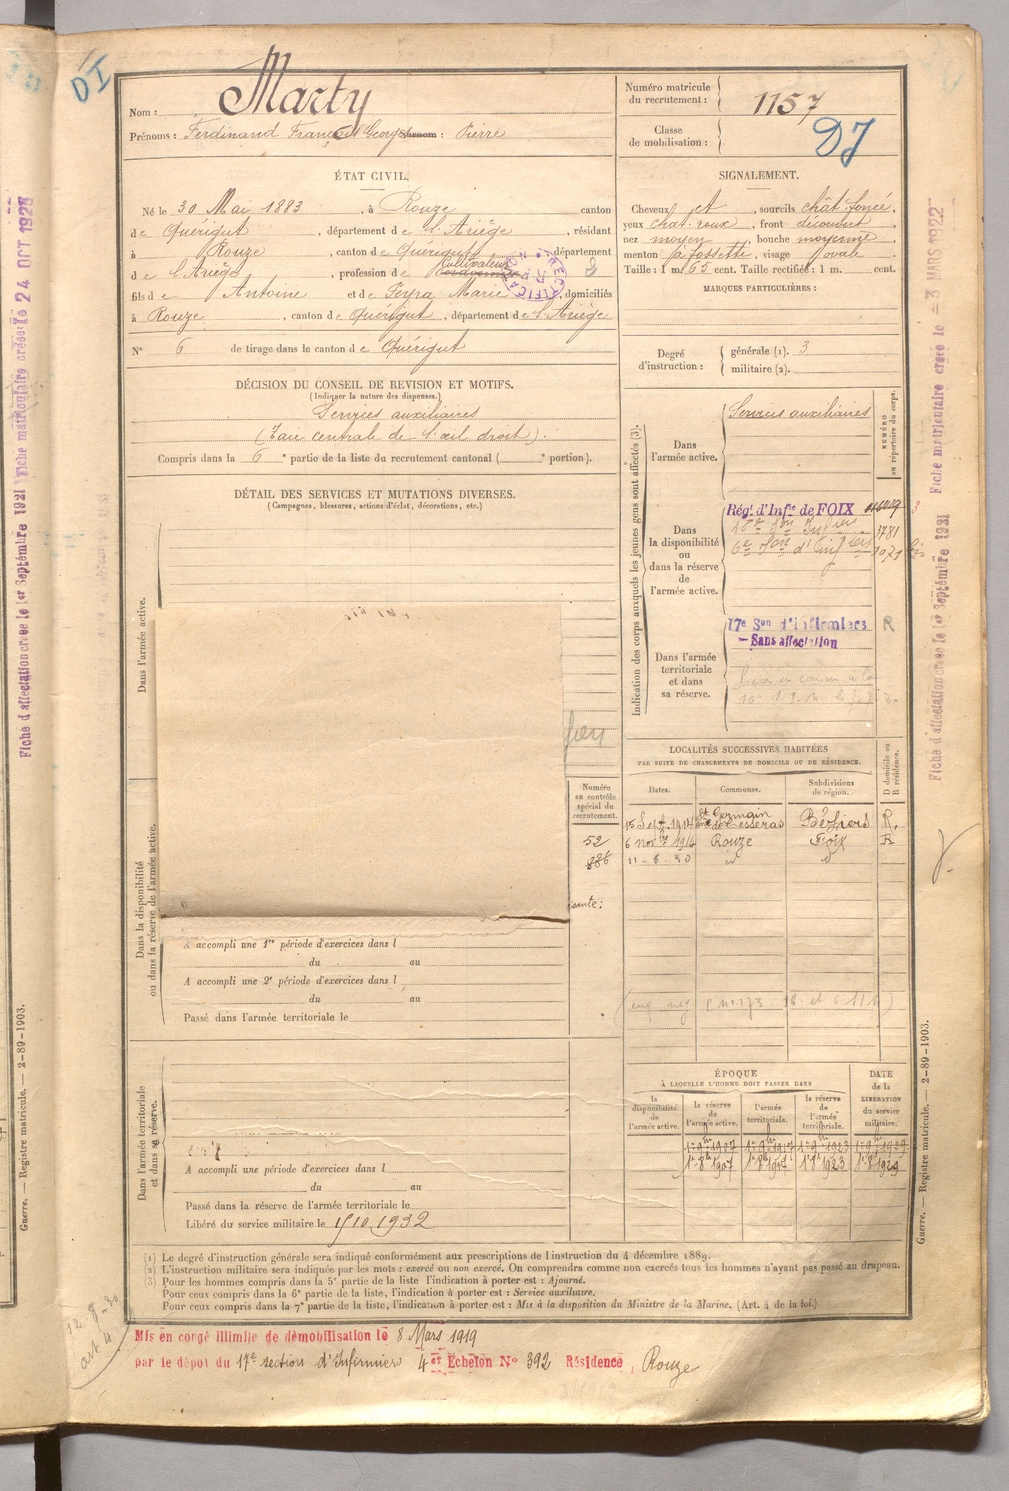 DI
Nom : Marty
Prénoms : Ferdinand François Georges Surnom : Pierre
Numéro matricule du recrutement : 1157
Classe de mobilisation :
DJ
ÉTAT CIVIL.
Né le 30 Mai 1883, à Rouze canton
de Quérigut, département de l'Ariège, résidant
à Rouze, canton de Quérigut, département
de l'Ariège, profession de Cultivateur
fils de Antoine et de Peyra Marie, domiciliés
à Rouze, canton de Quérigut, département de l'Ariège
N° 6 de tirage dans le canton de Quérigut
RECTIFICATION
SIGNALEMENT.
Cheveux et, sourcils chât. foncé,
yeux chat. roux, front découvert
nez moyen, bouche moyenne
menton à fossette, visage ovale
Taille : 1 m. 65 cent. Taille rectifiée : 1 m. cent.
MARQUES PARTICULIÈRES :
Degré d'instruction : générale (1). 3
militaire (2).
DÉCISION DU CONSEIL DE REVISION ET MOTIFS.
(Indiquer la nature des dispenses.)
Services auxiliaires
(Taie centrale de l'œil droit).
Compris dans la 6e partie de la liste du recrutement cantonal ( e portion).
DÉTAIL DES SERVICES ET MUTATIONS DIVERSES.
(Campagnes, blessures, actions d'éclat, décorations, etc.)
Dans l'armée active.
Dans la disponibilité ou dans la réserve de l'armée active.
Numéro au contrôle spécial du recrutement.
52
886
A accompli une 1re période d'exercices dans l
du au
A accompli une 2e période d'exercices dans l
du au
Passé dans l'armée territoriale le
Dans l'armée territoriale et dans sa réserve.
A accompli une période d'exercices dans l
du au
Passé dans la réserve de l'armée territoriale le
Libéré du service militaire le 15 10 1932
Indication des corps auxquels les jeunes gens sont affectés (3).
NUMÉRO au répertoire du corps.
Dans l'armée active.
Services auxiliaires
Dans la disponibilité ou dans la réserve de l'armée active.
Rég. d'Infie de FOIX
3781
1071 bis
Dans l'armée territoriale et dans sa réserve.
17e Son d'Infirmiers R
— Sans affectation
LOCALITÉS SUCCESSIVES HABITÉES
PAR SUITE DE CHANGEMENTS DE DOMICILE OU DE RÉSIDENCE.
Dates. Communes. Subdivisions de région. D domicile ou R résidence.
15 Sept. 1914 St Germain Béziers R.
6 nov. 1916 Rouze Foix R
11-8-30 id id
ÉPOQUE
À LAQUELLE L'HOMME DOIT PASSER DANS
la disponibilité de l'armée active. la réserve de l'armée active. l'armée territoriale. la réserve de l'armée territoriale. DATE de la LIBÉRATION du service militaire.
1er 9bre 1907 1er 9bre 1917 1er 9bre 1923 1er 9bre 1929
1er 8bre 1907 1er 8bre 1917 1er 8bre 1923 1er 8bre 1929
(1) Le degré d'instruction générale sera indiqué conformément aux prescriptions de l'instruction du 4 décembre 1889.
(2) L'instruction militaire sera indiquée par les mots : exercé ou non exercé. On comprendra comme non exercés tous les hommes n'ayant pas passé au drapeau.
(3) Pour les hommes compris dans la 5e partie de la liste l'indication à porter est : Ajourné.
Pour ceux compris dans la 6e partie de la liste, l'indication à porter est : Service auxiliaire.
Pour ceux compris dans la 7e partie de la liste, l'indication à porter est : Mis à la disposition du Ministre de la Marine. (Art. 4 de la loi.)
12-8-30
art 4
Mis en congé illimité de démobilisation le 8 Mars 1919
par le dépôt du 17e section d'Infirmiers 4er Echelon N° 392 Résidence, Rouze
Fiche d'affectation créée le 1er Septembre 1921 Fiche matriculaire créée le 24 OCT 1925
Guerre. — Registre matricule. — 2-89-1903.
Fiche d'affectation créée le 1er Septembre 1921 Fiche matriculaire créée le -3 MARS 1922
Guerre. — Registre matricule. — 2-89-1903.